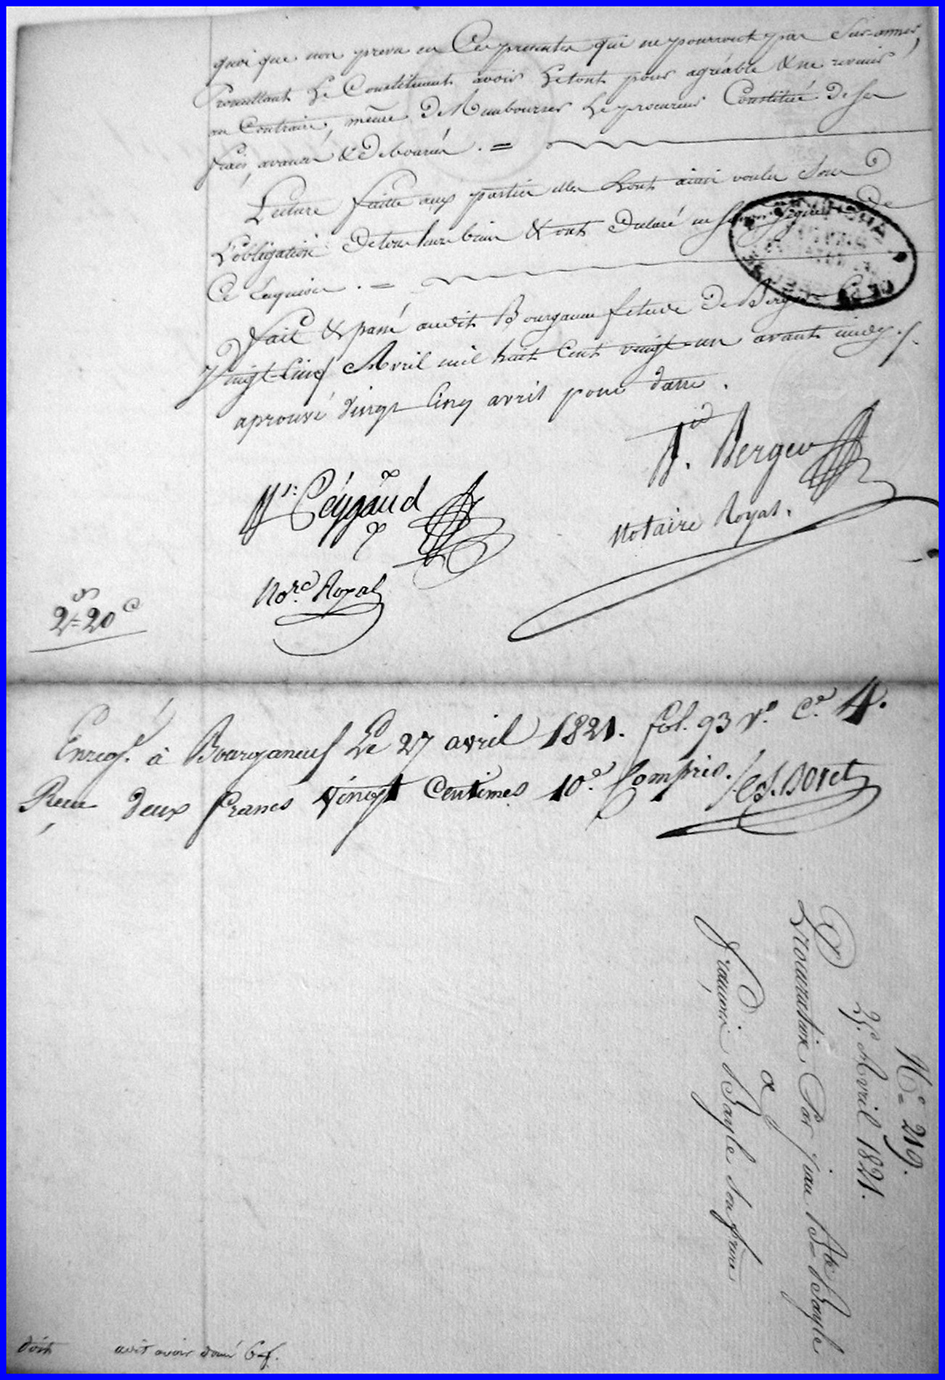 quoi que non prevu en Ces presentes qui ne pourront pas Sur-anner,
Promettant Le Constituant avoir Le tout pour agréable & ne revenir
au Contraire, même de Rembourser Le procureur Constitué de Ses
frais, avances & deboursés. =
Lecture faitte aux parties elles L'ont ainsi voulu Sous
L'obligation De tous leurs biens & ont Declaré ne Savoir Signer de
Ce Enquises. =
fait & passé audit Bourganeuf etude de Berger
vingt Cinq Avril mil huit Cent vingt-un avant midy ./.
aprouvé vingt Cinq avril pour datte.
Bd. Berger
Notaire Royal.
Peygaud
Nore. Royal
2f= 20c
Enregé. à Bourganeuf Le 27 avril 1821. fol. 93 Vo Ce. 4.
Reçu deux francs vingt Centimes 10e. Compris.
No= 219.
25. Avril 1821.
Procuration Par jean Bte= Bayle
a
françois Bayle Son frere
doit
avoir donné 6f.